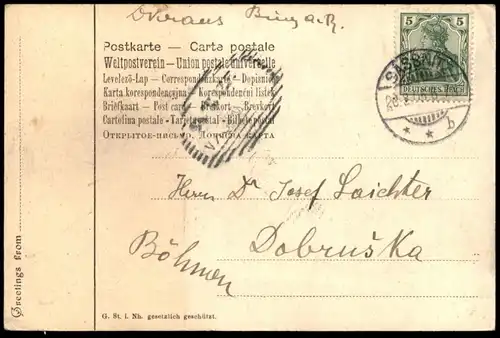 Postkarte — Carte postale
Weltpostverein — Union postale universelle
Levelező-Lap — Correspondenzkarte — Dopisnice
Karta korespondencyjna — Korespondenční lístek
Briefkaart — Post card — Brefkort — Brevkort
Cartolina postale — Tarjeta postal — Bilhete postal
ОТКРЫТОЕ ПИСЬМО.
5 5
SASSNITZ
DEUTSCHES REICH
* * b
Herrn Dr Josef Laichter
Dobruška
Böhmen
Greetings from
G. St. i. Nh. gesetzlich geschützt.